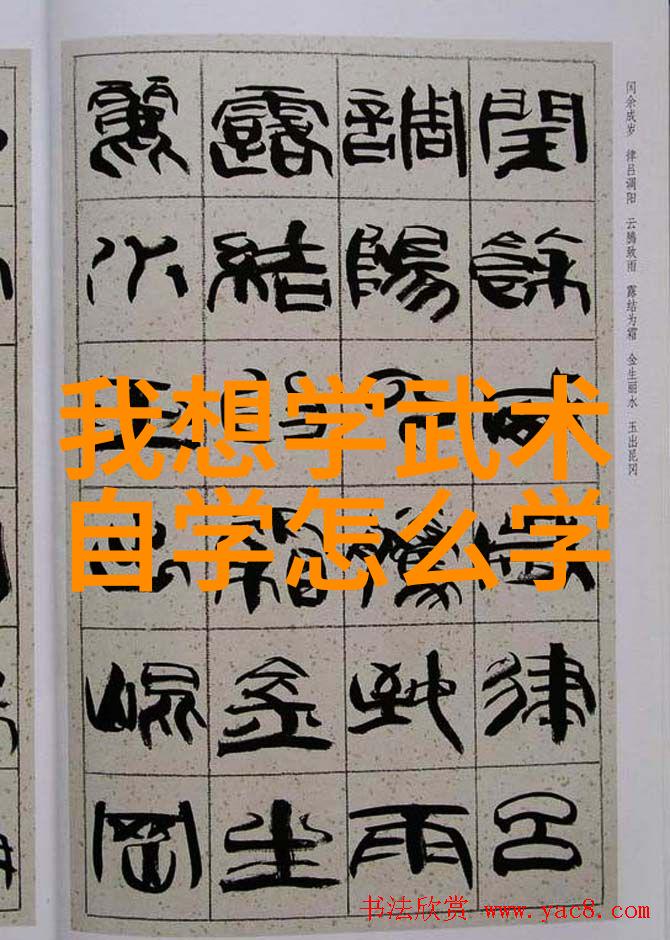 闰余成岁 律吕调阳 云腾致雨 露结为霜 金生丽水 玉出昆冈
閏餘成歲律呂
調陽云騰致雨
露結為霜金生
麗水玉出崐岡
我想学武术
自学怎么学
书法欣赏 www.yac8.com